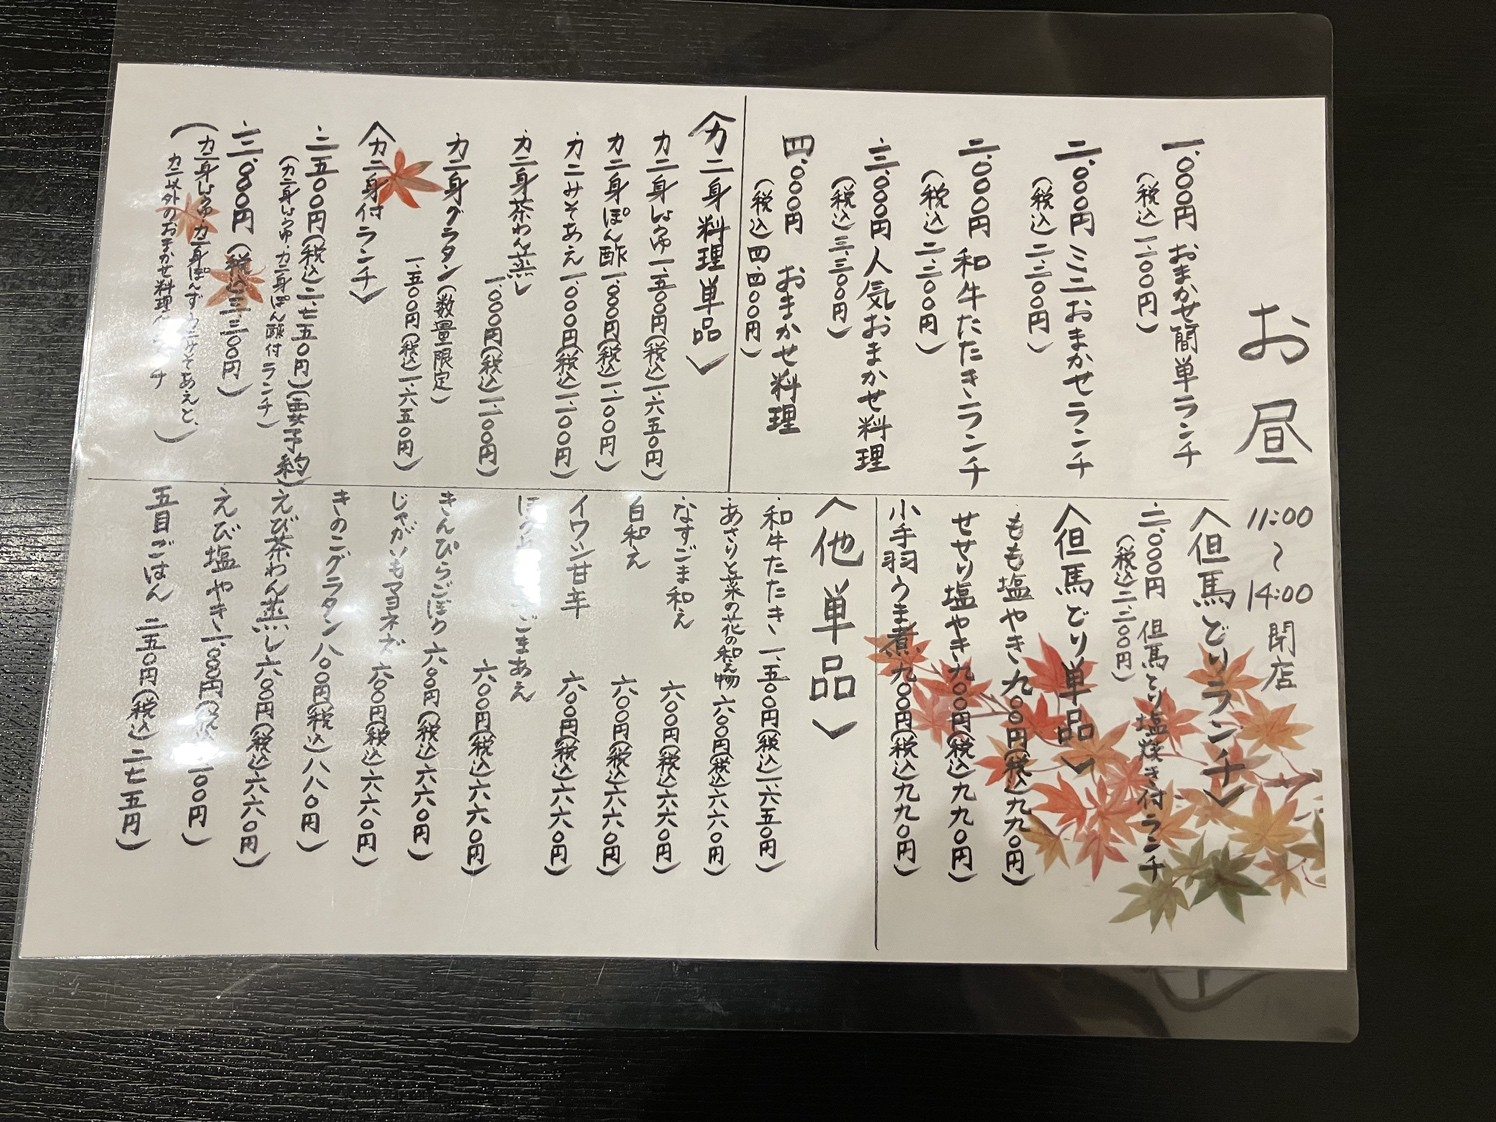 お昼 11:00〜14:00閉店
一、000円 おまかせ簡単ランチ
(税込一、一00円)
二、000円 ミニおまかせランチ
(税込二、二00円)
二、000円 和牛たたきランチ
(税込二、二00円)
三、000円 人気おまかせ料理
(税込三、三00円)
四、000円 おまかせ料理
(税込四、四00円)
〈但馬どりランチ〉
二、000円 但馬どり塩焼き付ランチ
(税込二、二00円)
〈但馬どり単品〉
もも塩やき、九00円(税込九九0円)
せせり塩やき、九00円(税込九九0円)
小手羽うま煮、九00円(税込九九0円)
〈カニ身料理単品〉
カニ身しょうゆ 一、五00円(税込一、六五0円)
カニ身ぽん酢 一、000円(税込一、一00円)
カニみそあえ 一、000円(税込一、一00円)
カニ身茶わん蒸し
一、000円(税込一、一00円)
カニ身グラタン(数量限定)
一、五00円(税込一、六五0円)
〈カニ身付ランチ〉
二、五00円(税込二、七五0円)(要予約)
(カニ身しょうゆ・カニ身ぽん酢付ランチ)
三、000円(税込三、三00円)
(カニ身しょうゆ・カニ身ぽんず・カニみそあえと、
カニ以外のおまかせ料理
〈他単品〉
和牛たたき、一、五00円(税込一、六五0円)
あさりと菜の花の和え物 六00円(税込六六0円)
なすごま和え 六00円(税込六六0円)
白和え 六00円(税込六六0円)
イワシ甘辛 六00円(税込六六0円)
ごまあえ 六00円(税込六六0円)
きんぴらごぼう 六00円(税込六六0円)
じゃがいもマヨネズ 六00円(税込六六0円)
きのこグラタン 八00円(税込八八0円)
えび茶わん蒸し 六00円(税込六六0円)
えび塩やき、一、000円(税込 一00円)
五目ごはん 二五0円(税込二七五円)